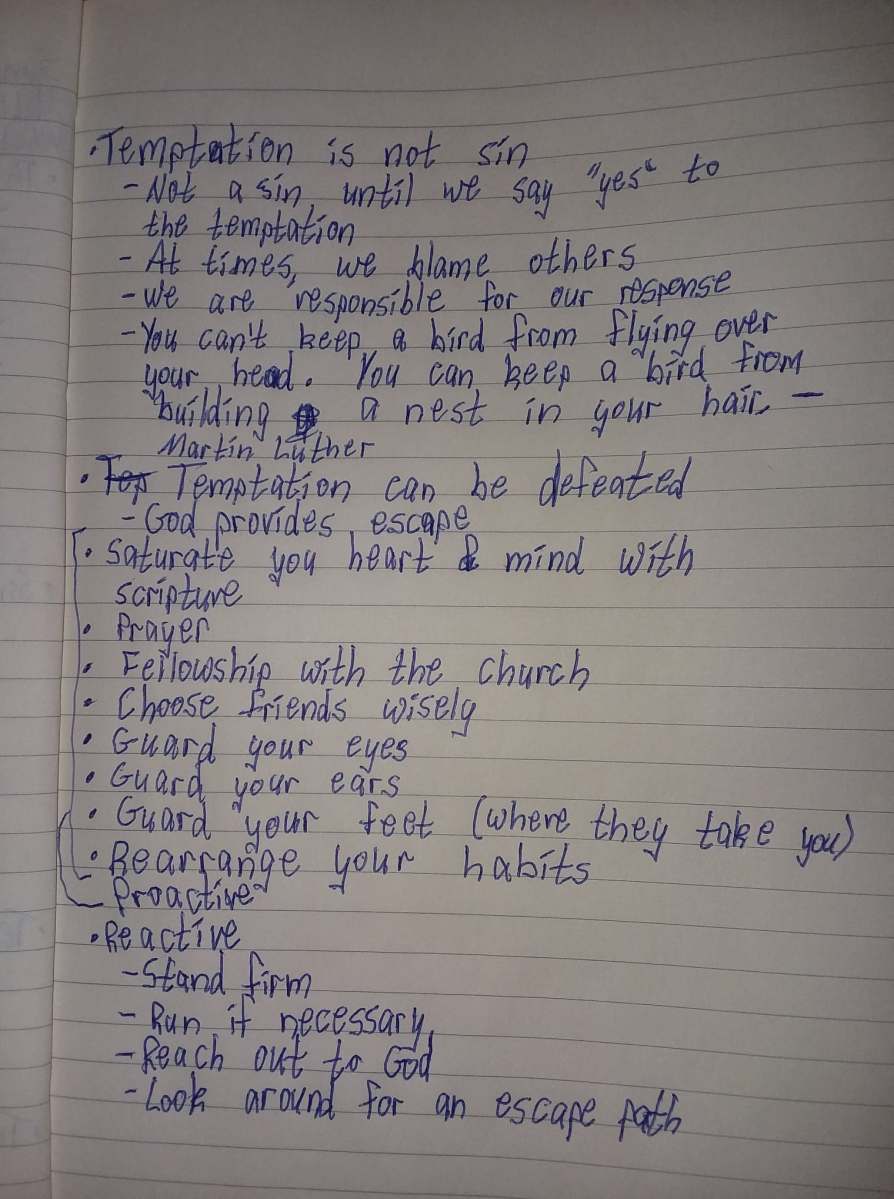 ·Temptation is not sin
-Not a sin until we say "yes" to
the temptation
-At times, we blame others
-We are responsible for our response
-You can't keep a bird from flying over
your head. You can keep a bird from
building a nest in your hair. —
Martin Luther
· Temptation can be defeated
-God provides escape
· Saturate you heart & mind with
scripture
· Prayer
· Fellowship with the church
· Choose friends wisely
· Guard your eyes
· Guard your ears
· Guard your feet (where they take you)
· Rearrange your habits
Proactive
·Reactive
-Stand firm
-Run if necessary
-Reach out to God
-Look around for an escape path